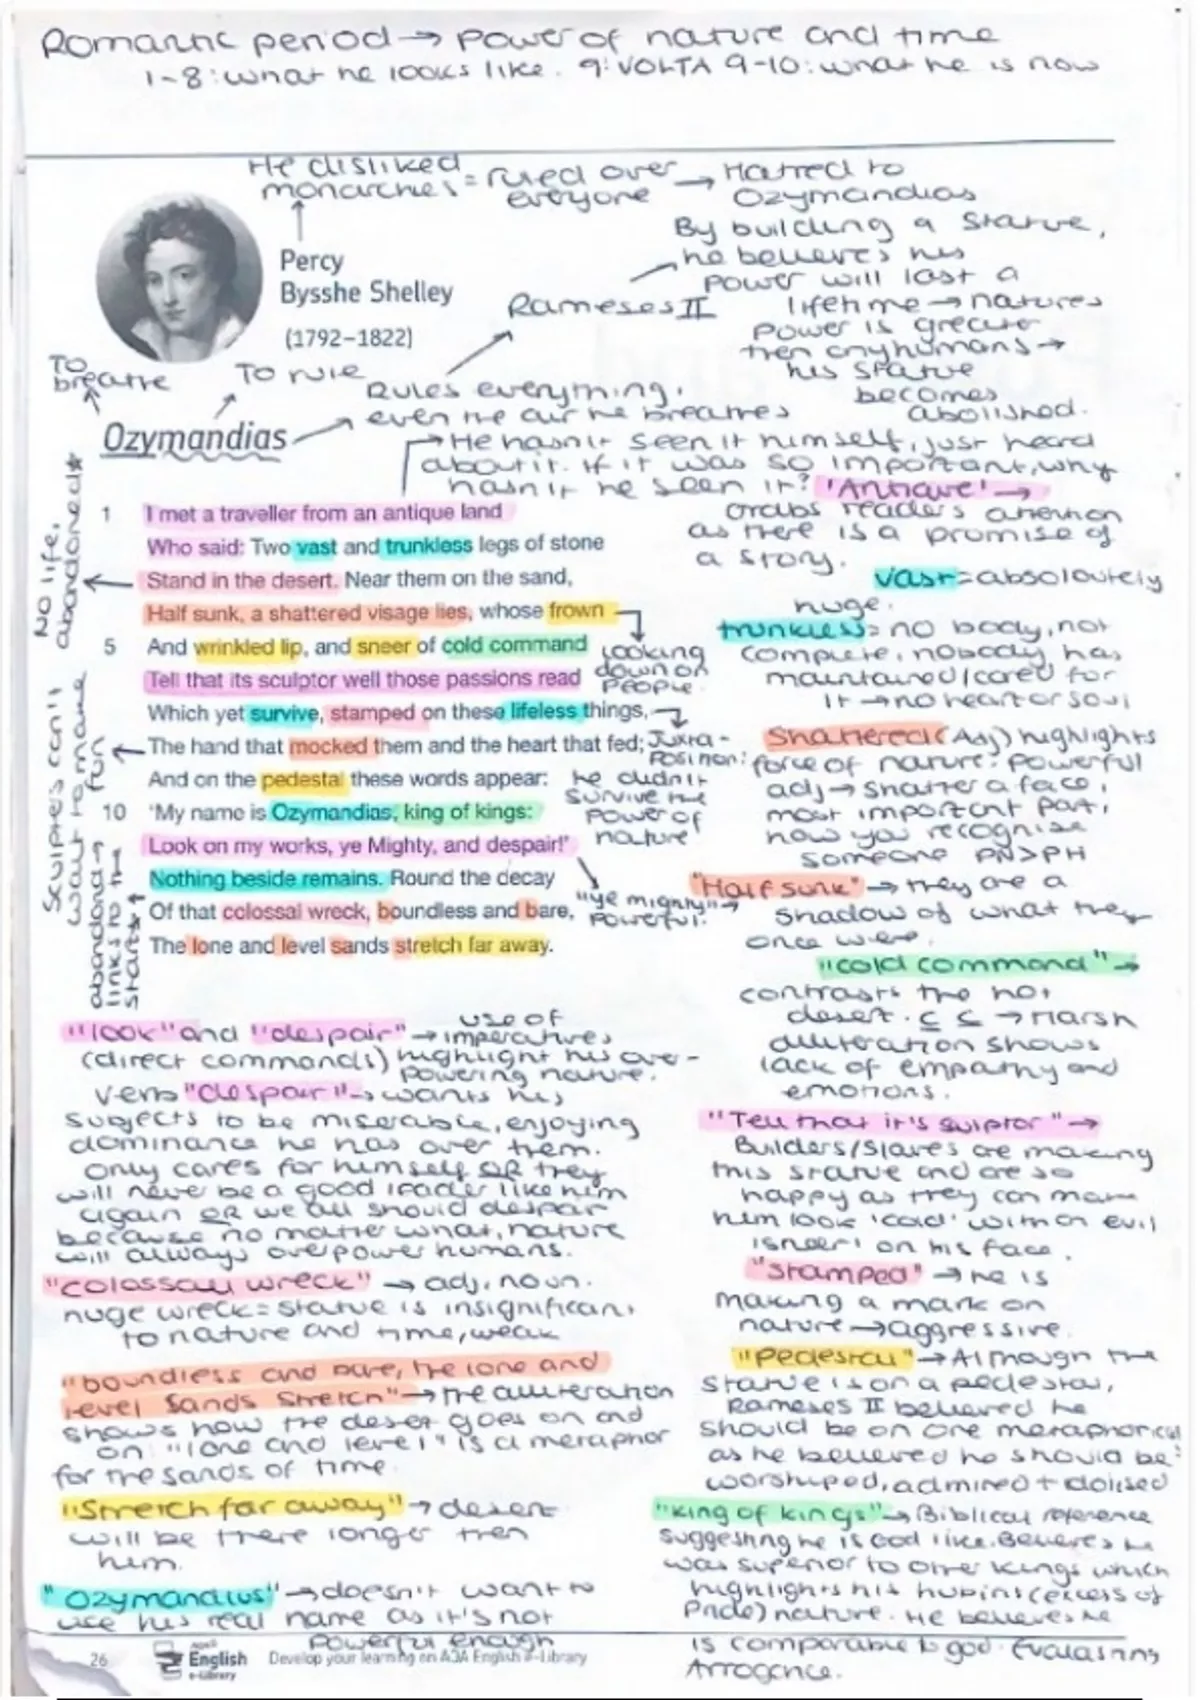 Romantic period → power of nature and time
1-8: what he looks like. 9: VOLTA 9-10: what he is now
He disliked monarchies = ruled over everyone → Hatred to Ozymandias
Percy
Bysshe Shelley
(1792–1822)
By building a statue,
he believes his
power will last a
lifetime → natures
power is greater
then anyhumans →
his statue
becomes
abolished.
Rameses II
To
breathe
To rule
Rules everything,
even the air he breathes
Ozymandias
He hasn't seen it himself, just heard
about it. If it was so important, why
hasn't he seen it?
'Antique' →
Grabs readers attention
as there is a promise of
a story.
No life,
abandoned*
1 I met a traveller from an antique land
Who said: Two vast and trunkless legs of stone
Stand in the desert. Near them on the sand,
Half sunk, a shattered visage lies, whose frown
5 And wrinkled lip, and sneer of cold command
Tell that its sculptor well those passions read
Which yet survive, stamped on these lifeless things,
The hand that mocked them and the heart that fed;
And on the pedestal these words appear:
10 'My name is Ozymandias, king of kings:
Look on my works, ye Mighty, and despair!'
Nothing beside remains. Round the decay
Of that colossal wreck, boundless and bare,
The lone and level sands stretch far away.
looking
down on
people.
Juxta-
position:
he didn't
survive the
power of
nature
"ye mighty" →
powerful.
wait to make
fun
abandoned →
links to the
start
vast = absoloutely
huge.
trunkless = no body, not
complete, nobody has
maintained/cared for
it → no heart or soul
Shattered (Adj) highlights
force of nature: powerful
adj → shatter a face,
most important part,
how you recognise
someone PN>PH
"Half sunk" → they are a
shadow of what they
once were.
"cold command" →
contrasts the hot
desert. C C → Harsh
alliteration shows
lack of empathy and
emotions.
"Tell that it's sulptor" →
Builders/Slaves are making
this statue and are so
happy as they can make
him look 'cold' with an evil
'sneer' on his face.
"Stamped" → he is
making a mark on
nature → aggressive.
"Pedestal" → Although the
statue is on a pedestal,
Rameses II believed he
should be on one metaphorical
as he believed he should be:
worshiped, admired +
"king of kings" → Biblical reference
suggesting he is God like. Believes he
was superior to other kings which
highlights his hubris (excess of
Pride) nature. He believes he
is comparable to god.
Arrogance.
"look" and "despair" → use of
imperatives
(direct commands) highlight his over-
powering nature.
verb "despair" → wants his
subjects to be miserable, enjoying
dominance he has over them.
Only cares for himself OR they
will never be a good leader like him
again OR we all should despair
because no matter what, nature
will always overpower humans.
"colossall wreck" → adj, noun.
huge wreck = statue is insignificant
to nature and time, weak
"boundless and bare, the lone and
level sands stretch" → the alliteration
shows how the desert goes on and
on. "lone and level" is a metaphor
for the sands of time.
"Stretch far away" → desert
will be there longer then
him.
"Ozymandius" → doesn't want to
use his real name as it's not
powerful enough
26 English e-Library Develop your learning on AQA English e-Library